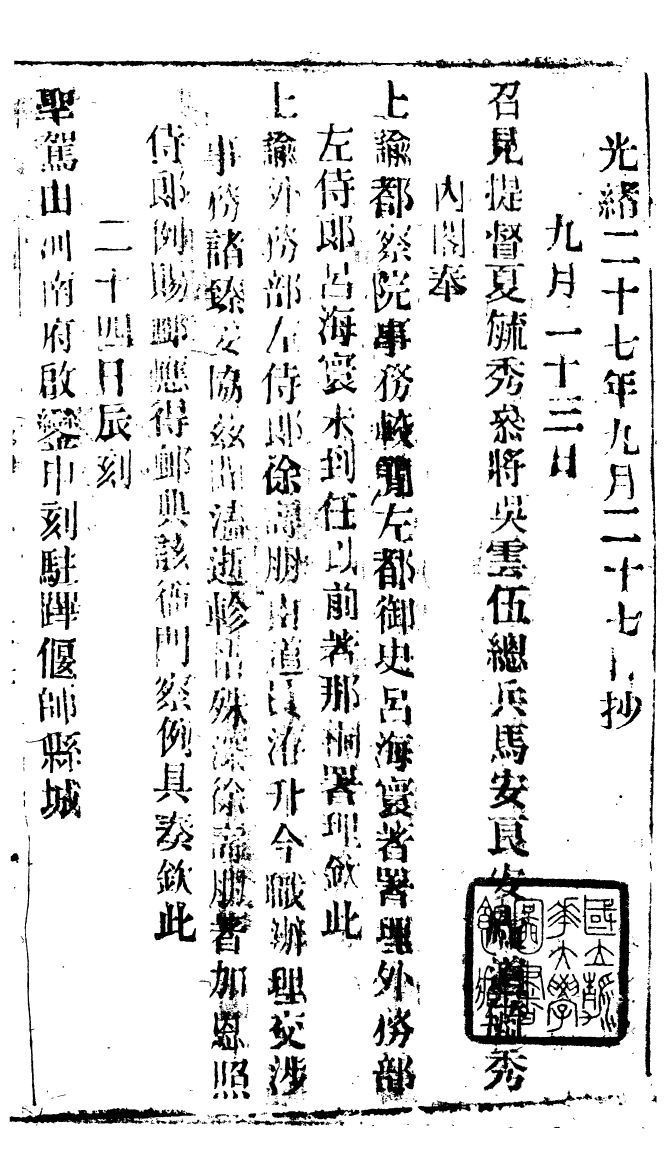 光緒二十七年九月二十七日抄
九月二十三日
召見提督夏毓秀參將吳雲伍總兵馬安良安 秀
內閣奉
上諭都察院事務較繁左都御史呂海寰著署理外務部
左侍郎呂海寰未到任以前著那桐署理欽此
上諭外務部左侍郎徐壽朋由道員洊升今職辦理交涉
事務諸臻妥協茲聞溘逝軫惜殊深徐壽朋著加恩照
侍郎例賜卹應得卹典該衙門察例具奏欽此
二十四日辰刻
聖駕由河南府啟鑾申刻駐蹕偃師縣城
國立清華大學圖書館藏